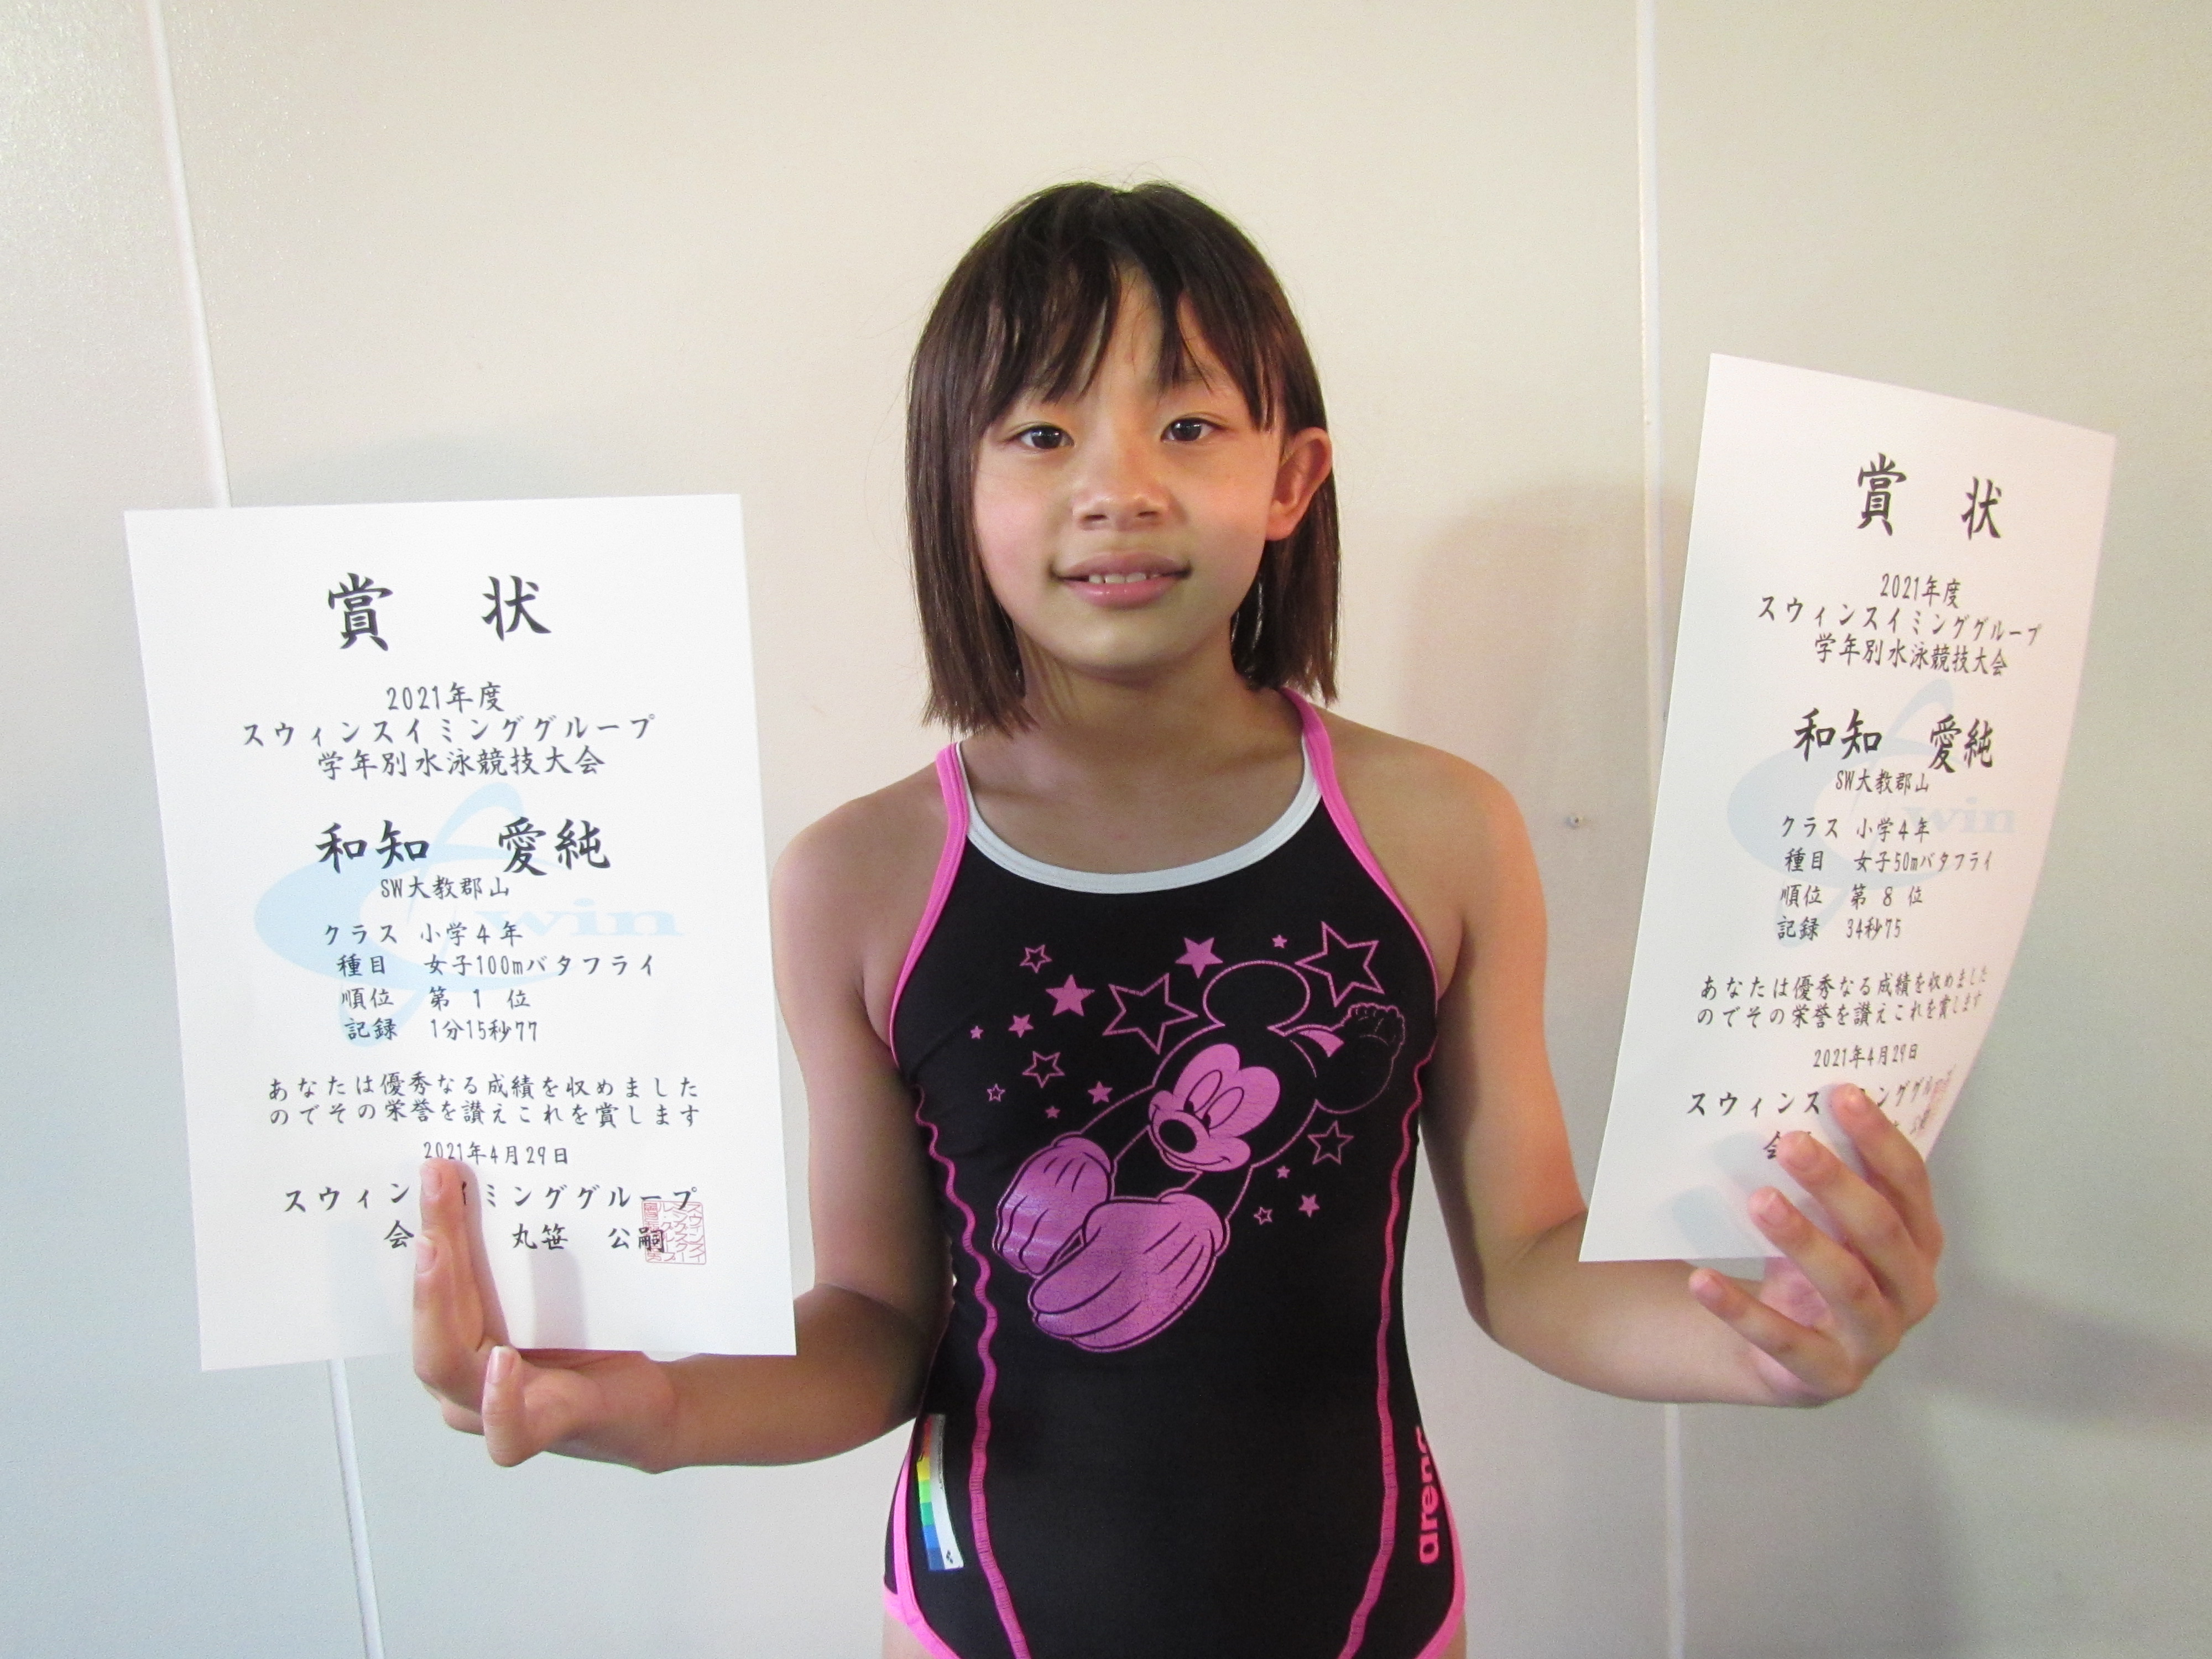 賞 状
2021年度
スウィンスイミンググループ
学年別水泳競技大会
和知 愛純
SW大教郡山
クラス 小学4年
種目 女子100mバタフライ
順位 第 1 位
記録 1分15秒77
あなたは優秀なる成績を収めました
のでその栄誉を讃えこれを賞します
2021年4月29日
スウィン イミンググループ
会 丸笹 公嗣
win
賞 状
2021年度
スウィンスイミンググループ
学年別水泳競技大会
和知 愛純
SW大教郡山
クラス 小学4年
種目 女子50mバタフライ
順位 第 8 位
記録 34秒75
あなたは優秀なる成績を収めました
のでその栄誉を讃えこれを賞します
2021年4月29日
スウィンス ミンググル
会
win
arena